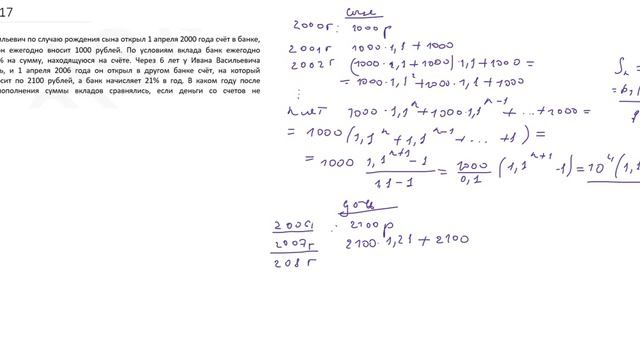 17
ильевич по случаю рождения сына открыл 1 апреля 2000 года счёт в банке,
он ежегодно вносит 1000 рублей. По условиям вклада банк ежегодно
% на сумму, находящуюся на счёте. Через 6 лет у Ивана Васильевича
ь, и 1 апреля 2006 года он открыл в другом банке счёт, на который
осит по 2100 рублей, а банк начисляет 21% в год. В каком году после
ополнения суммы вкладов сравнялись, если деньги со счетов не
сын
2000г: 1000р
2001г 1000·1,1+1000
2002г (1000·1,1+1000)·1,1+1000=
=1000·1,1²+1000·1,1+1000
n лет 1000·1,1ⁿ+1000·1,1ⁿ⁻¹+...+1000=
=1000(1,1ⁿ+1,1ⁿ⁻¹+...+1)=
=1000 (1,1ⁿ⁺¹-1)/(1,1-1) = 1000/0,1 (1,1ⁿ⁺¹-1)=10⁴(1,1
дочь
2006г : 2100р
2007г 2100·1,21+2100
208г